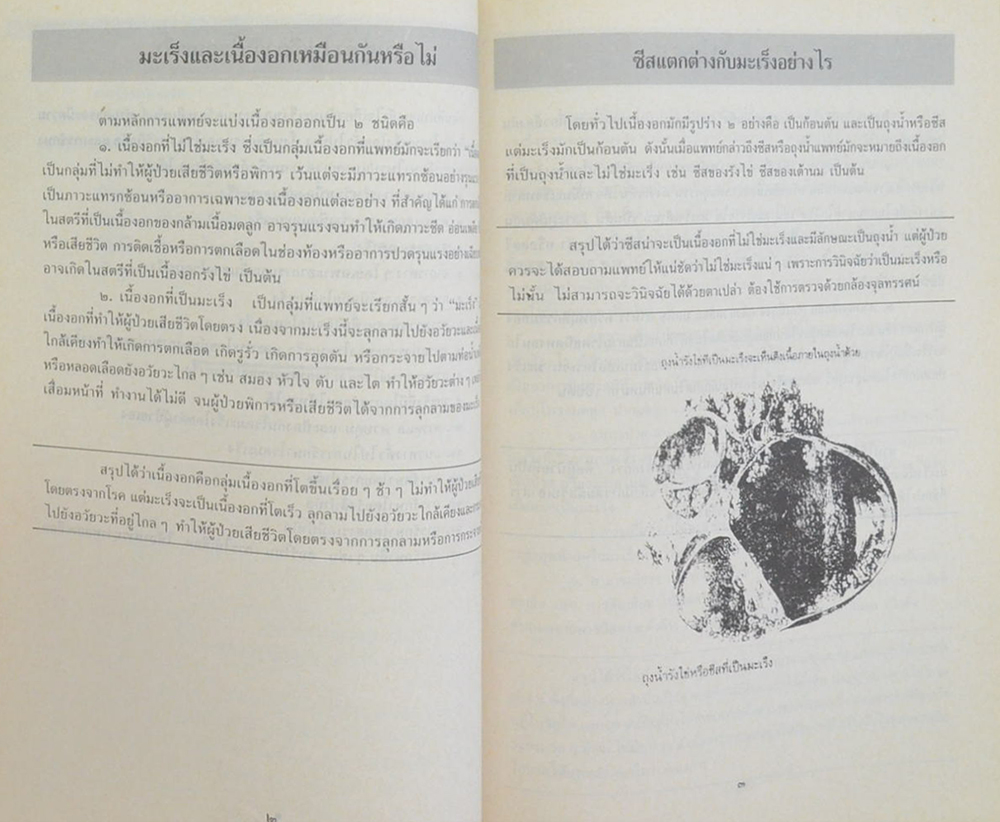 มะเร็งและเนื้องอกเหมือนกันหรือไม่
ตามหลักการแพทย์จะแบ่งเนื้องอกออกเป็น ๒ ชนิดคือ
๑. เนื้องอกที่ไม่ใช่มะเร็ง ซึ่งเป็นกลุ่มเนื้องอกที่แพทย์มักจะเรียกว่า
เป็นกลุ่มที่ไม่ทำให้ผู้ป่วยเสียชีวิตหรือพิการ เว้นแต่จะมีภาวะแทรกซ้อนอย่างรุนแรง
เป็นภาวะแทรกซ้อนหรืออาการเฉพาะของเนื้องอกแต่ละอย่าง ที่สำคัญได้แก่
ในสตรีที่เป็นเนื้องอกของกล้ามเนื้อมดลูก อาจรุนแรงจนทำให้เกิดภาวะซีด
หรือเสียชีวิต การติดเชื้อหรือการตกเลือดในช่องท้องหรืออาการปวดรุนแรงอย่าง
อาจเกิดในสตรีที่เป็นเนื้องอกรังไข่ เป็นต้น
๒. เนื้องอกที่เป็นมะเร็ง เป็นกลุ่มที่แพทย์จะเรียกสั้น ๆ ว่า "มะเร็ง"
เนื้องอกที่ทำให้ผู้ป่วยเสียชีวิตโดยตรง เนื่องจากมะเร็งนี้จะลุกลามไปยังอวัยวะ
ใกล้เคียงทำให้เกิดการตกเลือด เกิดรูรั่ว เกิดการอุดตัน หรือกระจายไปตาม
หรือหลอดเลือดยังอวัยวะไกล ๆ เช่น สมอง หัวใจ ตับ และไต ทำให้อวัยวะต่าง ๆ
เสื่อมหน้าที่ ทำงานได้ไม่ดี จนผู้ป่วยพิการหรือเสียชีวิตได้จากการลุกลามของ
สรุปได้ว่าเนื้องอกคือกลุ่มเนื้องอกที่โตขึ้นเรื่อย ๆ ช้า ๆ ไม่ทำให้ผู้ป่วย
โดยตรงจากโรค แต่มะเร็งจะเป็นเนื้องอกที่โตเร็ว ลุกลามไปยังอวัยวะใกล้เคียง
ไปยังอวัยวะที่อยู่ไกล ๆ ทำให้ผู้ป่วยเสียชีวิตโดยตรงจากการลุกลามหรือการ
๒
ซีสแตกต่างกับมะเร็งอย่างไร
โดยทั่วไปเนื้องอกมักมีรูปร่าง ๒ อย่างคือ เป็นก้อนตัน และเป็นถุงน้ำหรือซีส
แต่มะเร็งมักเป็นก้อนตัน ดังนั้นเมื่อแพทย์กล่าวถึงซีสหรือถุงน้ำแพทย์มักจะหมายถึงเนื้องอก
ที่เป็นถุงน้ำและไม่ใช่มะเร็ง เช่น ซีสของรังไข่ ซีสของเต้านม เป็นต้น
สรุปได้ว่าซีสน่าจะเป็นเนื้องอกที่ไม่ใช่มะเร็งและมีลักษณะเป็นถุงน้ำ แต่ผู้ป่วย
ควรจะได้สอบถามแพทย์ให้แน่ชัดว่าไม่ใช่มะเร็งแน่ ๆ เพราะการวินิจฉัยว่าเป็นมะเร็งหรือ
ไม่นั้น ไม่สามารถจะวินิจฉัยได้ด้วยตาเปล่า ต้องใช้การตรวจด้วยกล้องจุลทรรศน์
ถุงน้ำรังไข่ที่เป็นมะเร็งจะเห็นติ่งเนื้อภายในถุงน้ำด้วย
ถุงน้ำรังไข่หรือซีสที่เป็นมะเร็ง
๓